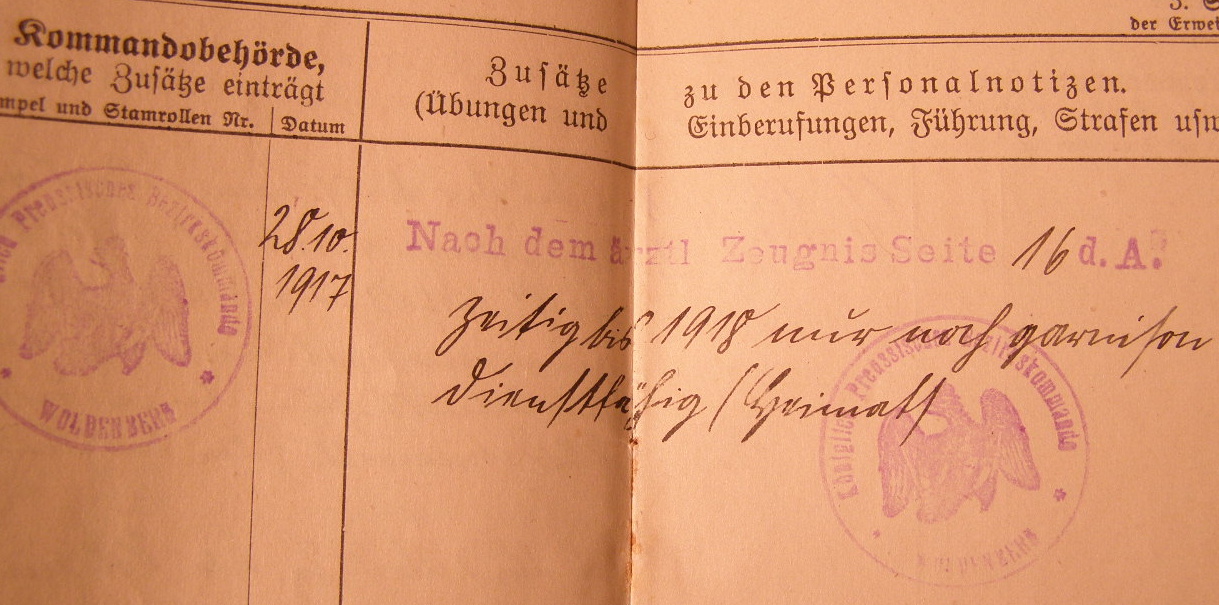 3. S
der Erwei
Kommandobehörde,
welche Zusätze einträgt
mpel und Stamrollen Nr.
Datum
Zusätze zu den Personalnotizen.
(Übungen und Einberufungen, Führung, Strafen usw
Königlich Preussisches Bezirkskommando
WOLDENBERG
28.10.
1917
Nach dem ärztl Zeugnis Seite 16 d. A.
zeitig bis 1918 nur noch garnison
dienstfähig (Heimat)
Königlich Preussisches Bezirkskommando
WOLDENBERG